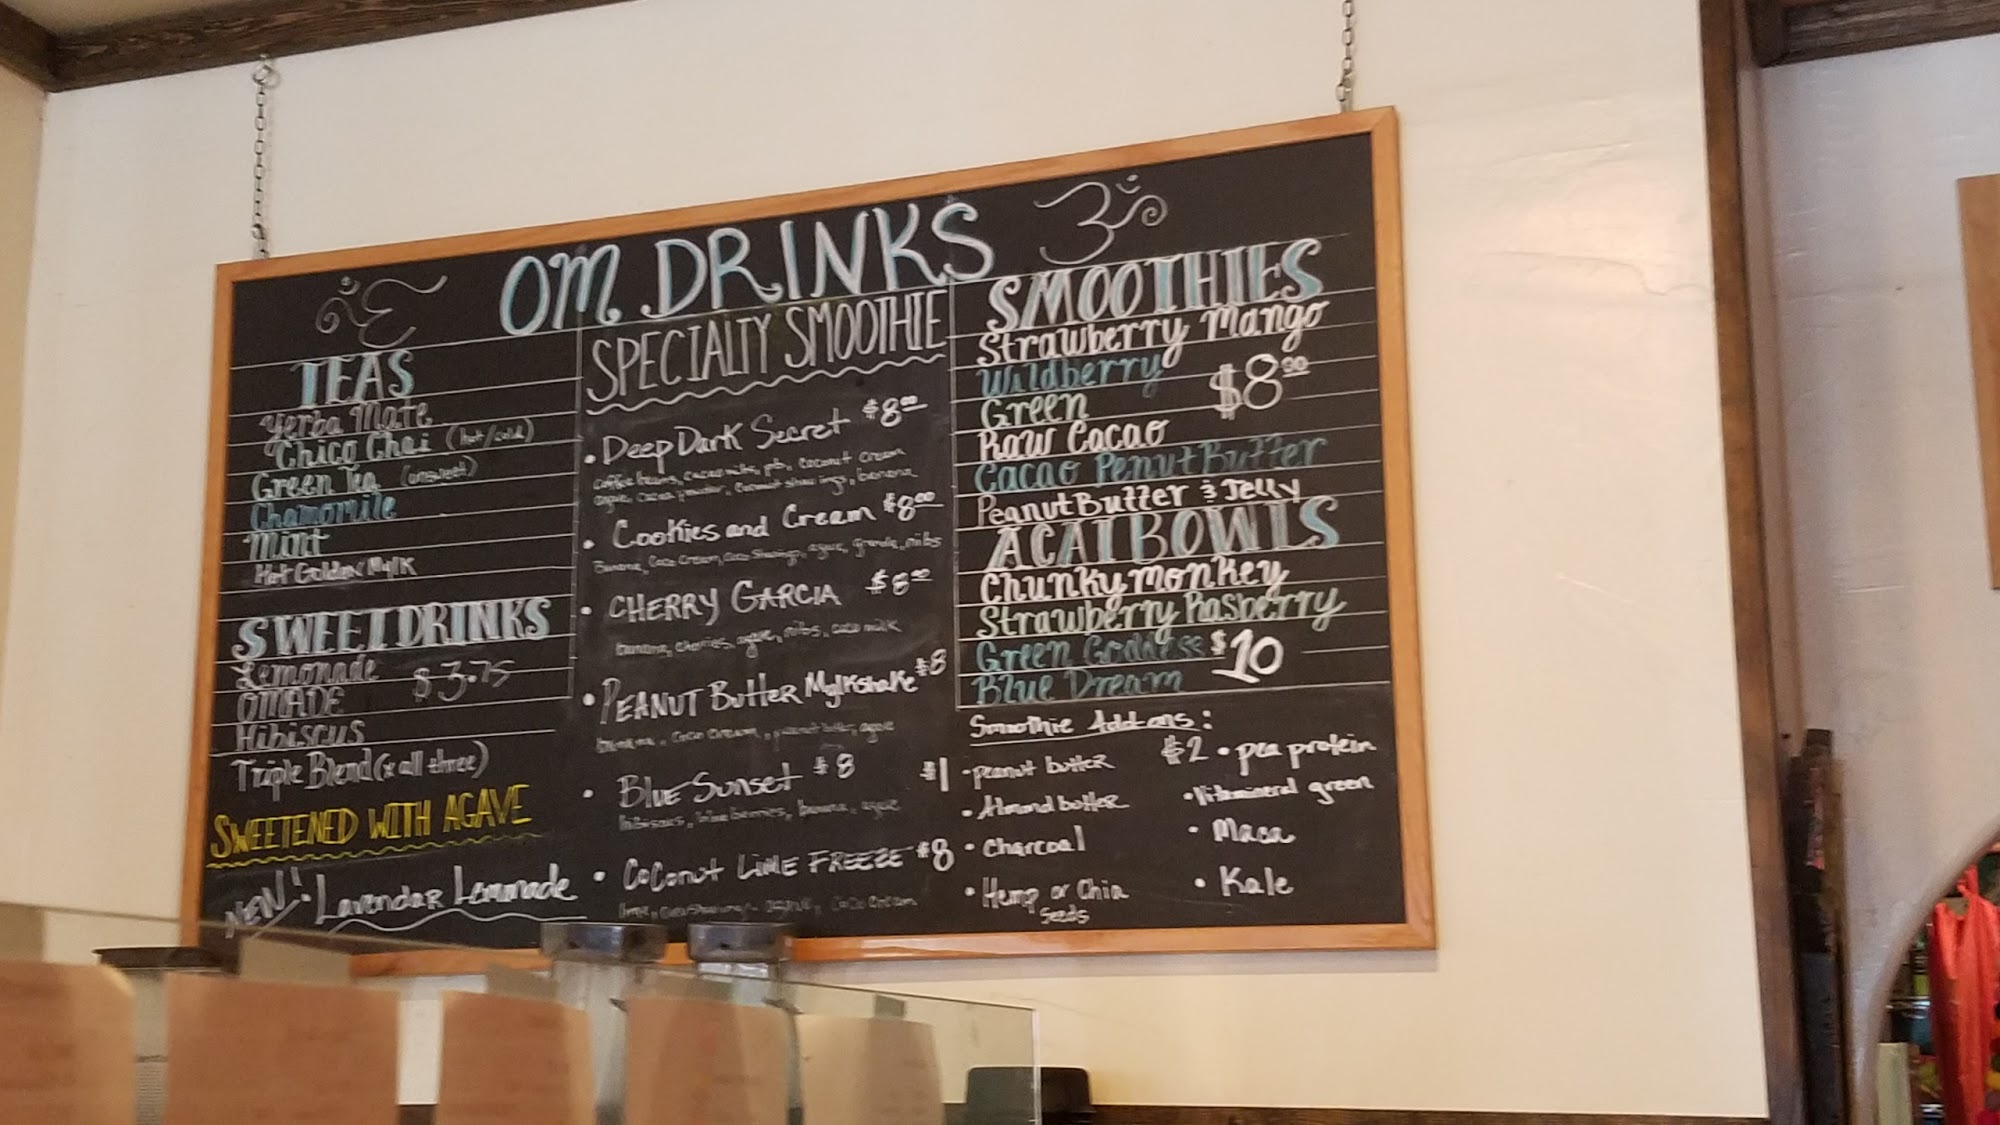 OM DRINKS
TEAS
Yerba Mate
Chico Chai (hot/cold)
Green Tea (unsweet)
Chamomile
Mint
Hot Golden Mylk
SWEET DRINKS
Lemonade
$3.75
OMADE
Hibiscus
Triple Blend (x all three)
SWEETENED WITH AGAVE
NEW! Lavendar Lemonade
SPECIALTY SMOOTHIE
• Deep Dark Secret $8.00
coffee beans, cacao nibs, pb, coconut cream
agave, cacao powder, coconut shavings, banana
• Cookies and Cream $8.00
Banana, Coco Cream, Coco Shavings, agave, granola, nibs
• CHERRY GARCIA $8.00
banana, cherries, agave, nibs, coco milk
• PEANUT Butter Mylkshake $8
banana, coco cream, peanut butter, agave
• BLUE Sunset $8
hibiscus, blueberries, banana, agave
• Coconut LIME FREEZE $8
lime, coco shavings, agave, coco cream
SMOOTHIES
Strawberry Mango
Wildberry
$8.00
Green
Raw Cacao
Cacao Penut Butter
Peanut Butter & Jelly
ACAI BOWLS
Chunky Monkey
Strawberry Rasberry
Green Goddess
$10
Blue Dream
Smoothie Add-ons:
$1 • peanut butter
• Almond butter
• Charcoal
• Hemp or Chia
Seeds
$2 • pea protein
• Vitamineral green
• Maca
• Kale